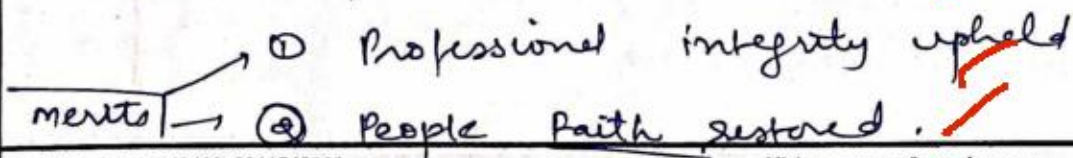 ① Professional integrity upheld
merits → ② People Faith restored.